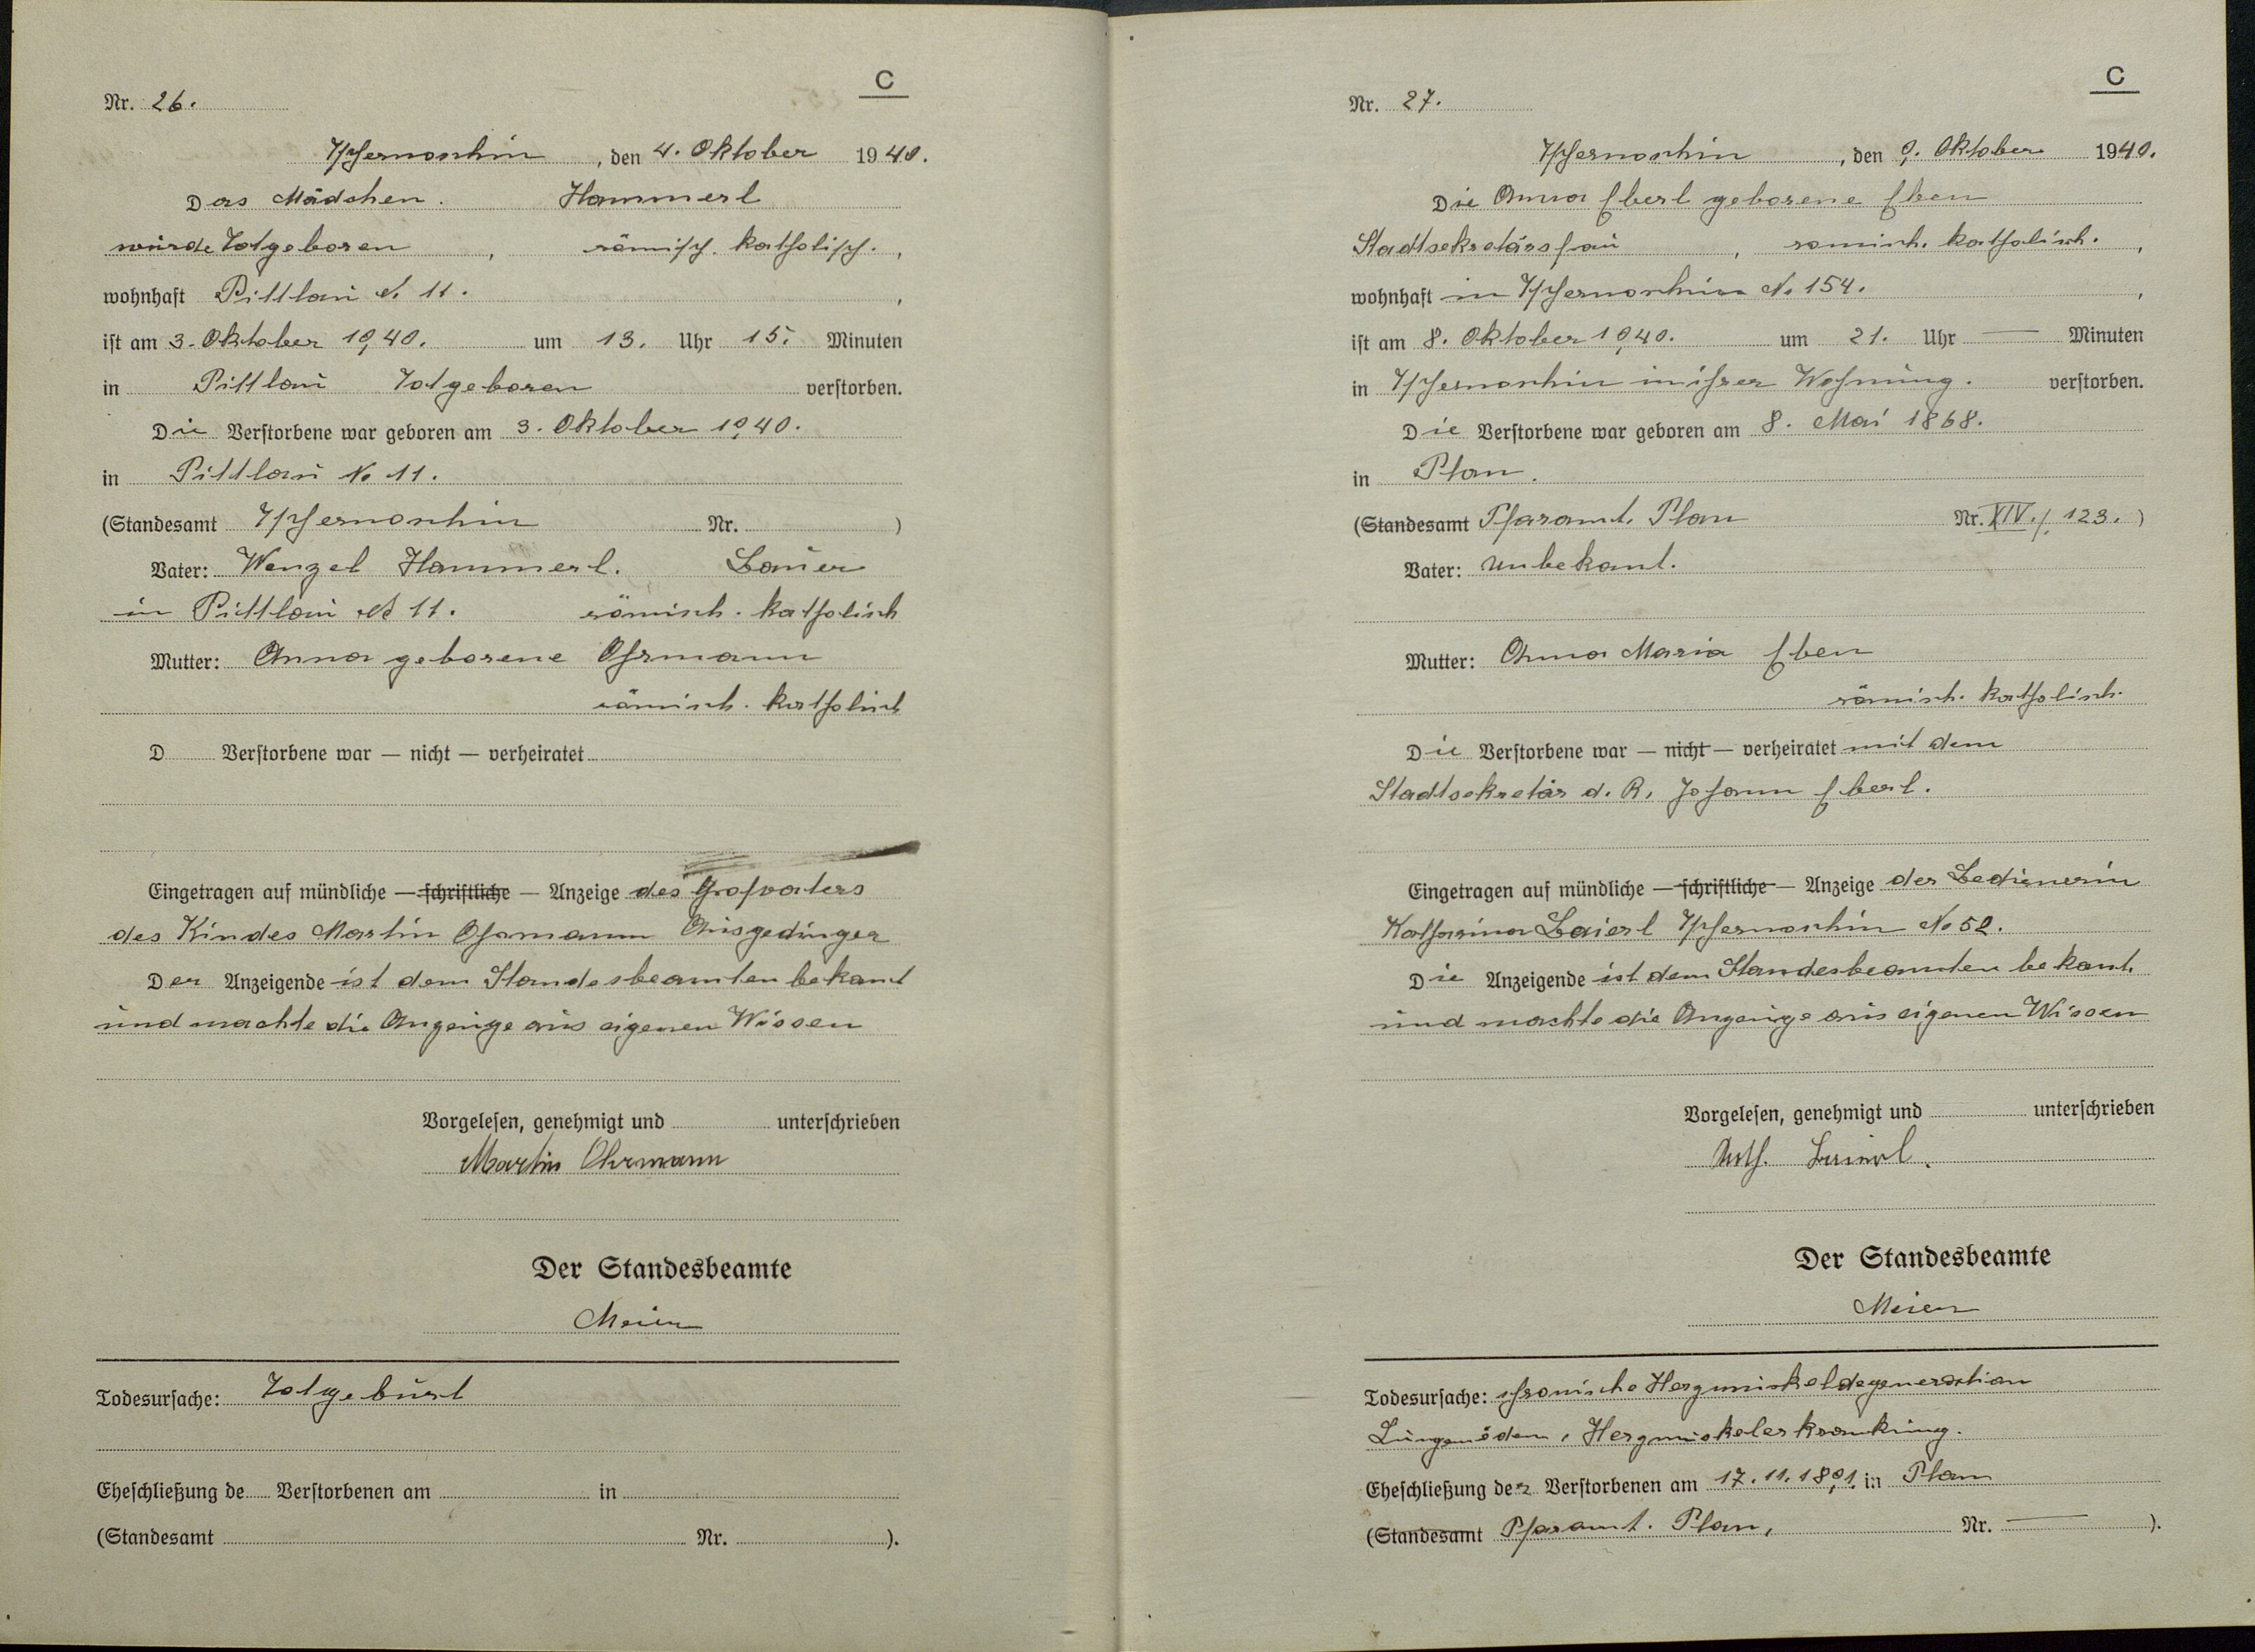 C
Nr. 26.
Tschernoschin, den 4. Oktober 1940.
Das Mädchen. Hammerl
wurde Totgeboren, römisch. katholisch.,
wohnhaft Pittlau N. 11.,
ist am 3. Oktober 1940. um 13. Uhr 15. Minuten
in Pittlau Totgeboren verstorben.
Die Verstorbene war geboren am 3. Oktober 1940.
in Pittlau No 11.
(Standesamt Tschernoschin Nr. )
Vater: Wenzel Hammerl. Bauer
in Pittlau No 11. römisch. katholisch
Mutter: Anna geborene Ohrmann
römisch. katholisch
D Verstorbene war — nicht — verheiratet
Eingetragen auf mündliche — schriftliche — Anzeige des Großvaters
des Kindes Martin Ohrmann Ausgedinger
Der Anzeigende ist dem Standesbeamten bekant
und machte die Anzeige aus eigenen Wissen
Vorgelesen, genehmigt und unterschrieben
Martin Ohrmann
Der Standesbeamte
Meier
Todesursache: Totgeburt
Eheschließung de Verstorbenen am in
(Standesamt Nr. ).
C
Nr. 27.
Tschernoschin, den 9. Oktober 1940.
Die Anna Eberl geborene Eben
Stadtsekretärsfrau, römisch. katholisch.,
wohnhaft in Tschernoschin No 154.,
ist am 8. Oktober 1940. um 21. Uhr — Minuten
in Tschernoschin in ihrer Wohnung. verstorben.
Die Verstorbene war geboren am 8. Mai 1868.
in Plan.
(Standesamt Pfaramt. Plan Nr. XIV./. 123. )
Vater: Unbekant.
Mutter: Anna Maria Eben
römisch. katholisch.
Die Verstorbene war — nicht — verheiratet mit dem
Stadtsekretär d. R. Johann Eberl.
Eingetragen auf mündliche — schriftliche — Anzeige der Bedienerin
Katharina Baierl Tschernoschin No 52.
Die Anzeigende ist dem Standesbeamten bekant.
und machte die Anzeige aus eigenen Wissen
Vorgelesen, genehmigt und unterschrieben
Kath. Baierl.
Der Standesbeamte
Meier
Todesursache: chronische Herzmuskeldegeneration
Lungenödem, Herzmuskelerkrankung.
Eheschließung der Verstorbenen am 17.11.1891. in Plan
(Standesamt Pfaramt. Plan, Nr. — ).